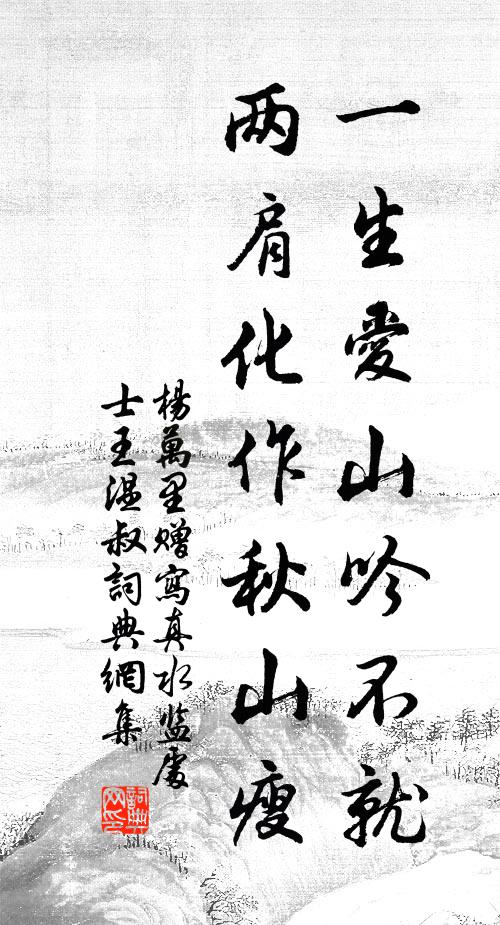 一生愛山吟不就
两肩化作秋山瘦
楊萬里赠寫真水监處
士王温叔詞典網集